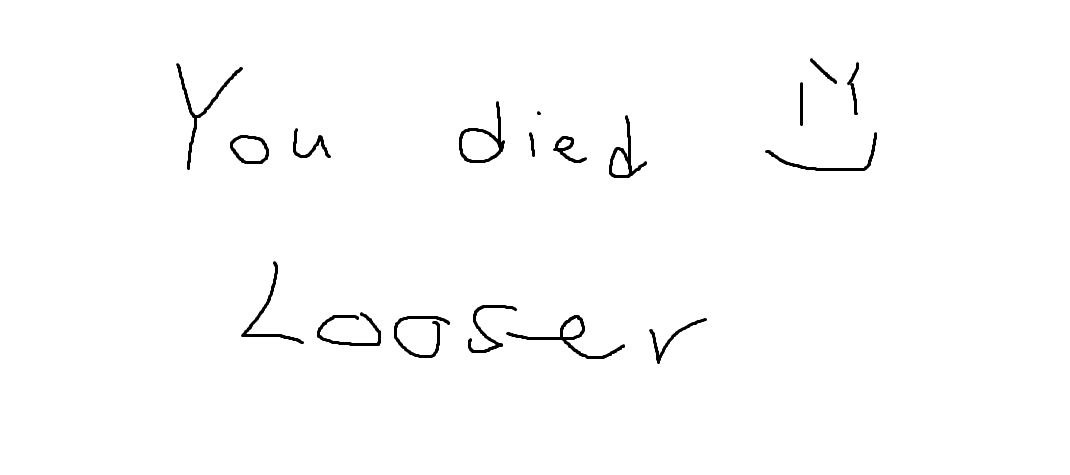 You died
Looser